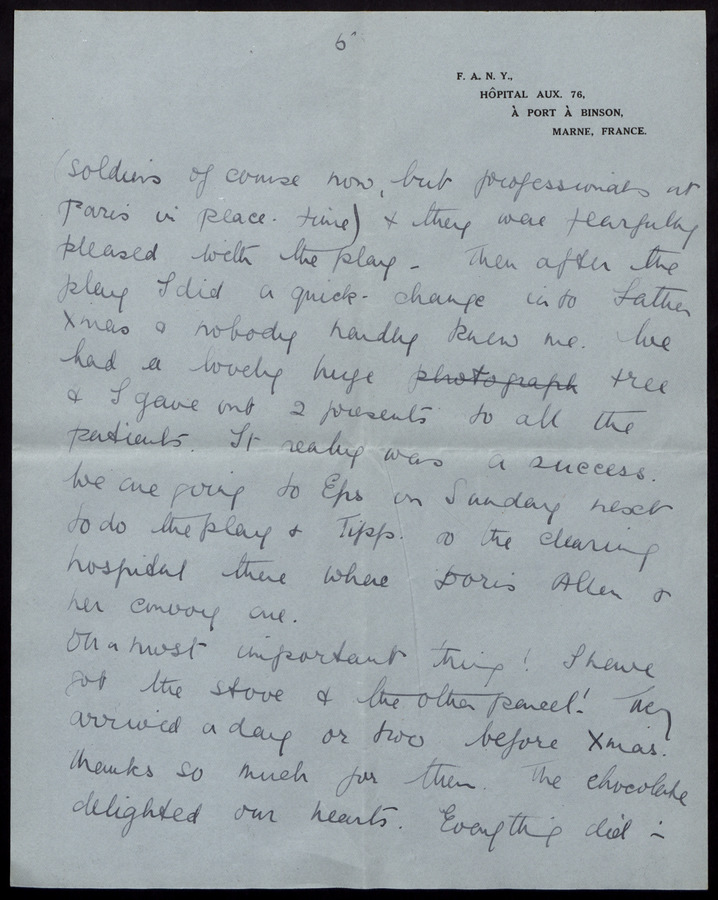 6
F. A. N. Y.,
HÔPITAL AUX. 76,
À PORT À BINSON,
MARNE, FRANCE.
(soldiers of course now, but professionals at
Paris in peace-time) & they were fearfully
pleased with the play - Then after the
play I did a quick-change into Father
Xmas & nobody hardly knew me. We
had a lovely huge photograph tree
& I gave out 2 presents to all the
patients. It really was a success.
We are going to Eps on Sunday next
to do the play & Tipp. to the clearing
hospital there where Doris Allen &
her convoy are.
Oh a most important thing! I have
got the stove & the other parcel! They
arrived a day or two before Xmas.
Thanks so much for them. The chocolate
delighted our hearts. Everything did -